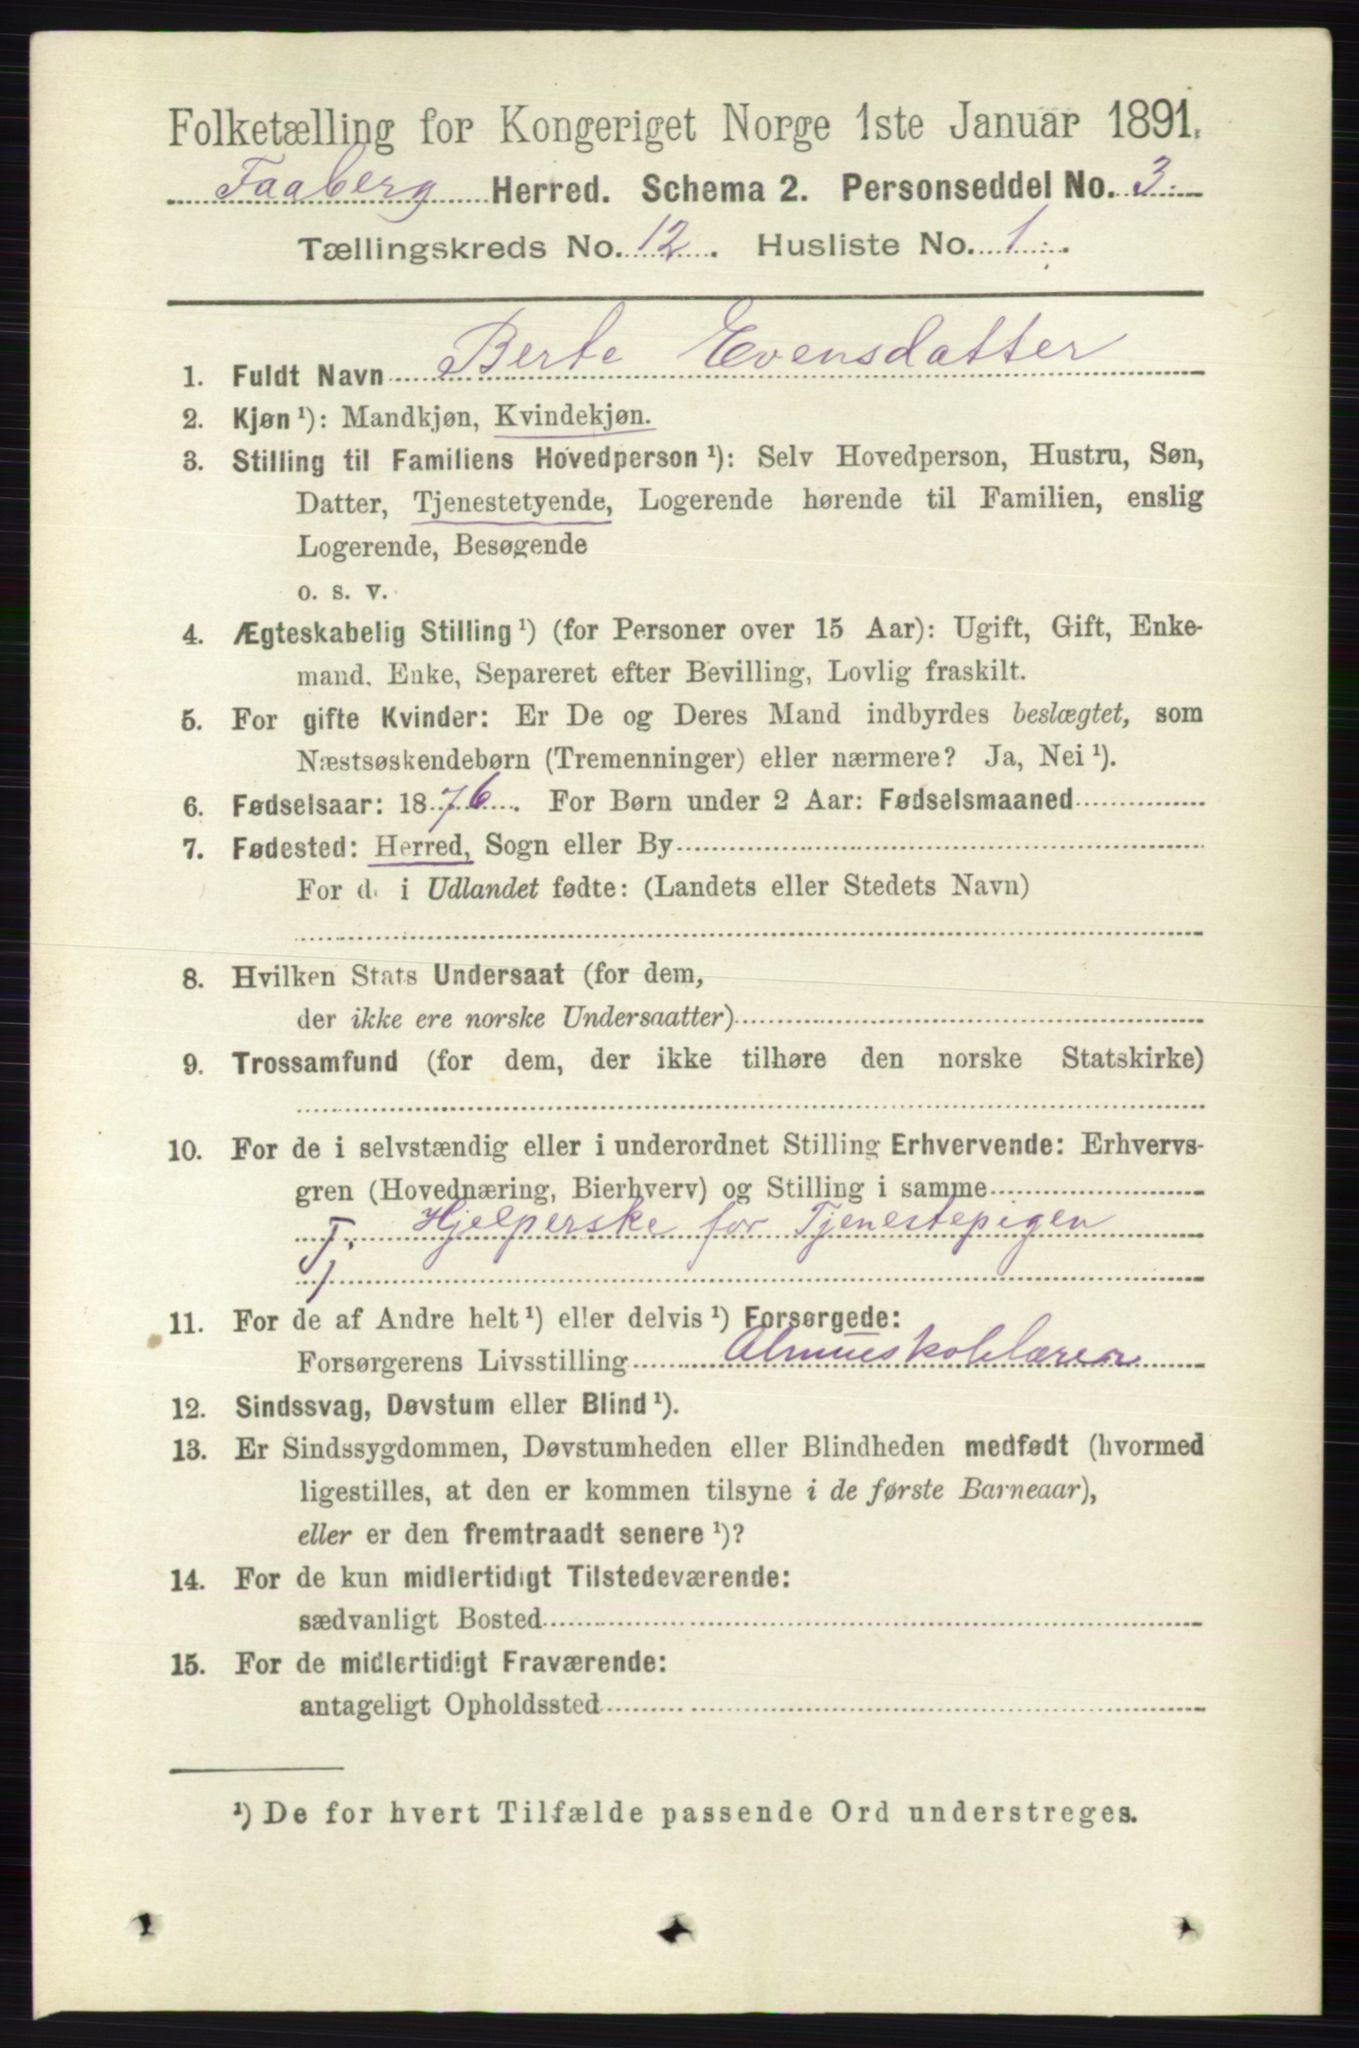 Folketælling for Kongeriget Norge 1ste Januar 1891.
Faaberg Herred. Schema 2. Personseddel No. 3.
Tællingskreds No. 12. Husliste No. 1.
1. Fuldt Navn Berte Evensdatter
2. Kjøn ¹): Mandkjøn, Kvindekjøn.
3. Stilling til Familiens Hovedperson ¹): Selv Hovedperson, Hustru, Søn,
Datter, Tjenestetyende, Logerende hørende til Familien, enslig
Logerende, Besøgende
o. s. v.
4. Ægteskabelig Stilling ¹) (for Personer over 15 Aar): Ugift, Gift, Enke-
mand, Enke, Separeret efter Bevilling, Lovlig fraskilt.
5. For gifte Kvinder: Er De og Deres Mand indbyrdes beslægtet, som
Næstsøskendebørn (Tremenninger) eller nærmere? Ja, Nei ¹).
6. Fødselsaar: 1876. For Børn under 2 Aar: Fødselsmaaned
7. Fødested: Herred, Sogn eller By
For d. i Udlandet fødte: (Landets eller Stedets Navn)
8. Hvilken Stats Undersaat (for dem,
der ikke ere norske Undersaatter)
9. Trossamfund (for dem, der ikke tilhøre den norske Statskirke)
10. For de i selvstændig eller i underordnet Stilling Erhvervende: Erhvervs-
gren (Hovednæring, Bierhverv) og Stilling i samme
T. Hjelperske for Tjenestepigen
11. For de af Andre helt ¹) eller delvis ¹) Forsørgede:
Forsørgerens Livsstilling Almueskolelærer
12. Sindssvag, Døvstum eller Blind ¹).
13. Er Sindssygdommen, Døvstumheden eller Blindheden medfødt (hvormed
ligestilles, at den er kommen tilsyne i de første Barneaar),
eller er den fremtraadt senere ¹)?
14. For de kun midlertidigt Tilstedeværende:
sædvanligt Bosted
15. For de midlertidigt Fraværende:
antageligt Opholdssted
¹) De for hvert Tilfælde passende Ord understreges.